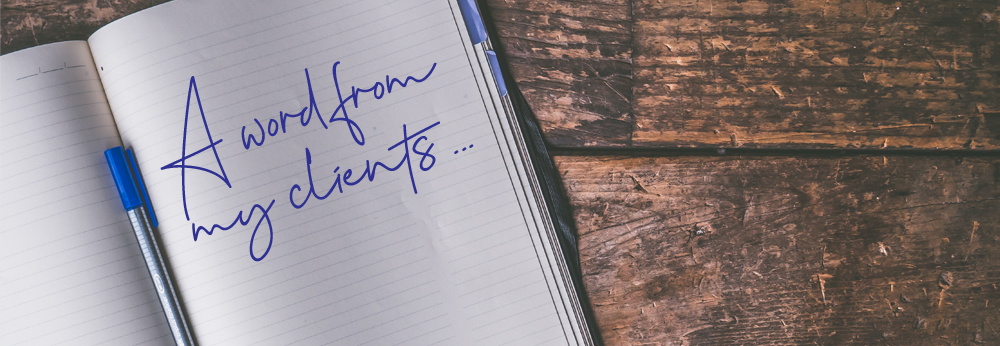 A word from
my clients ...